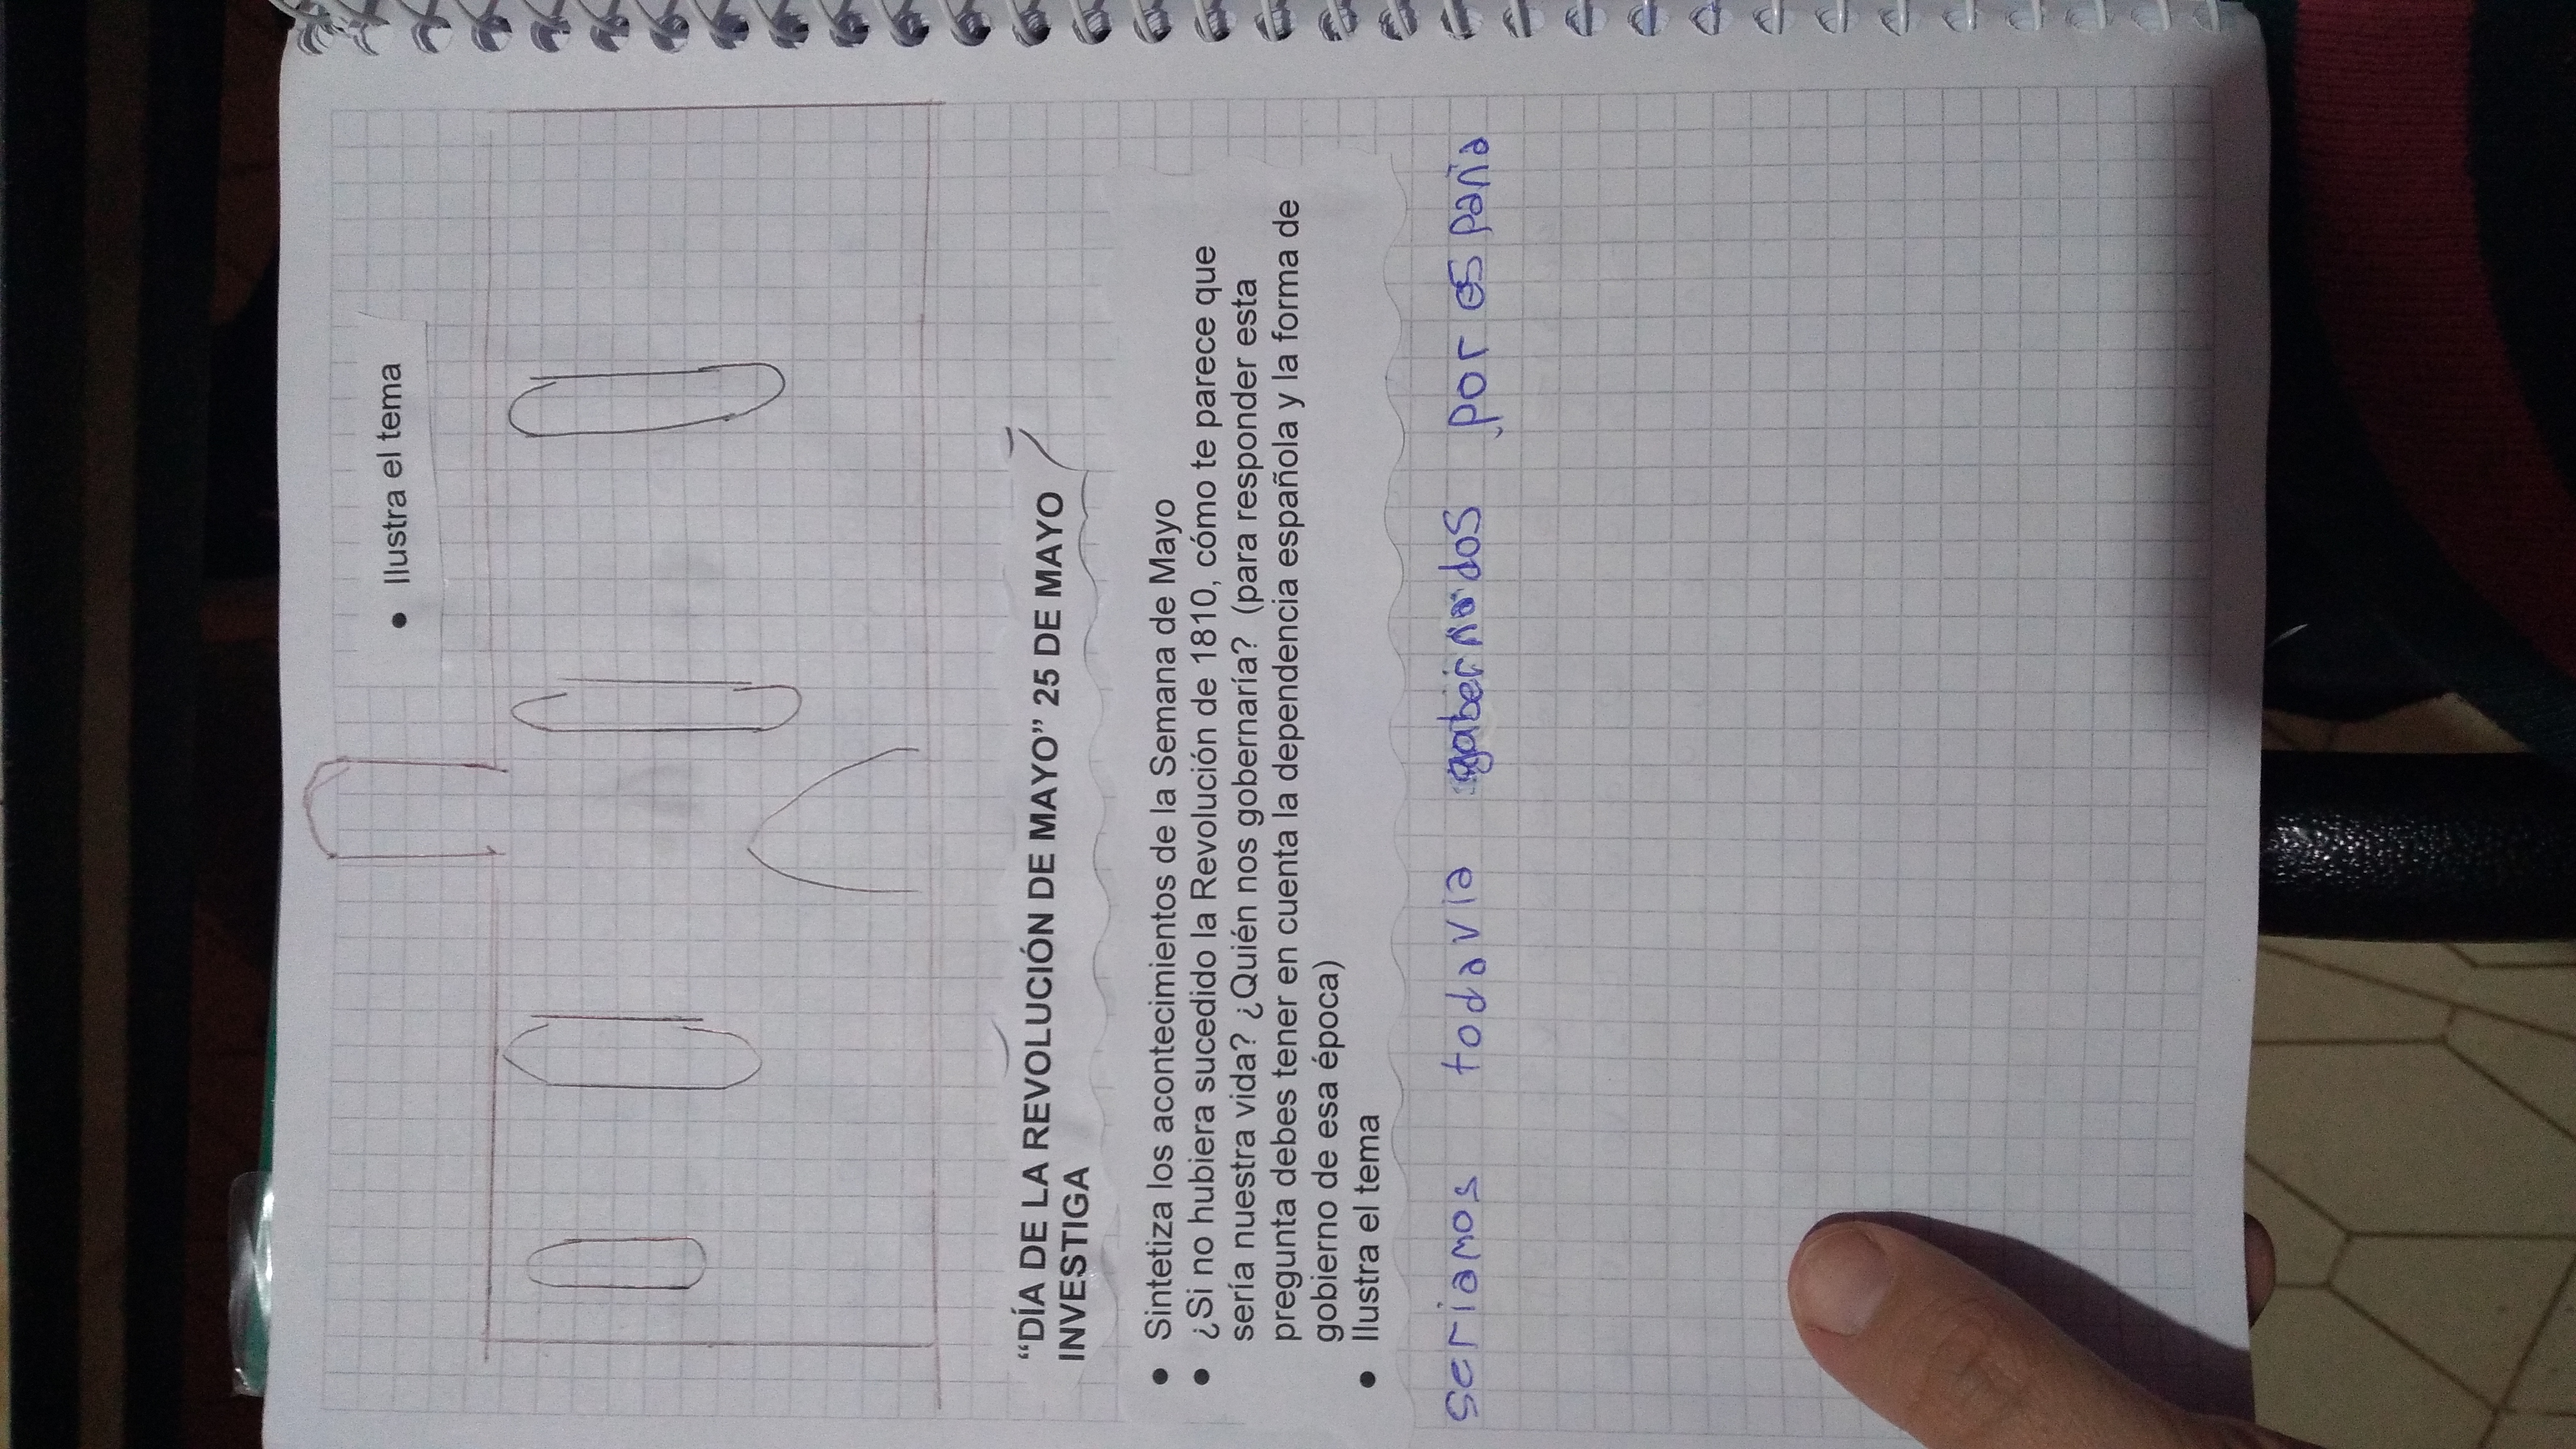 • Ilustra el tema
“DÍA DE LA REVOLUCIÓN DE MAYO” 25 DE MAYO
INVESTIGA
• Sintetiza los acontecimientos de la Semana de Mayo
• ¿Si no hubiera sucedido la Revolución de 1810, cómo te parece que
sería nuestra vida? ¿Quién nos gobernaría? (para responder esta
pregunta debes tener en cuenta la dependencia española y la forma de
gobierno de esa época)
• Ilustra el tema
seriamos todavia gabernados por españa